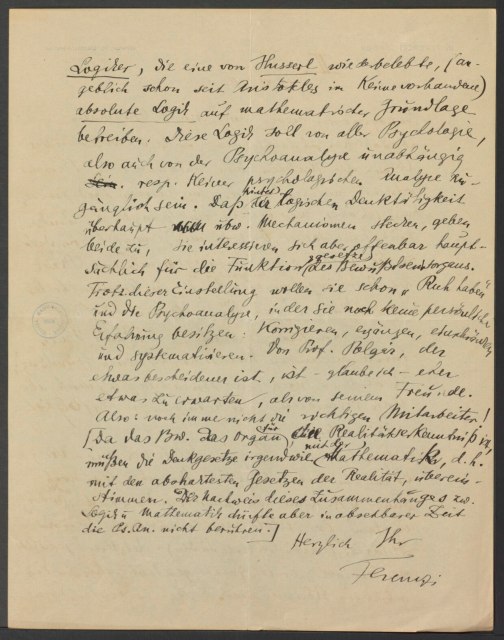 Logiker, die eine von Husserl wiederbelebte, (an-
geblich schon seit Aristoteles im Keime vorhandene)
absolute Logik auf mathematischer Grundlage
betreiben. Diese Logik soll von aller Psychologie,
also auch von der Psychoanalyse unabhängig
sein. resp. keiner psychologischen Analyse zu-
gänglich sein. Daß hinter der logischen Denktätigkeit
überhaupt ubw. Mechanismen stecken, geben
beide zu, sie interessieren sich aber offenbar haupt-
sächlich für die Funktionsgesetze des Bewußtseinsorgans.
Trotz dieser Einstellung wollen sie schon
und die Psychoanalyse, in der sie noch keine persönliche
Erfahrung besitzen: korrigieren, ergänzen,
und systematisieren. Von Prof. Polgár, der
etwas bescheidener ist, ist – glaube ich – eher
etwas zu erwarten, als von seinem Freunde.
Also: noch immer nicht die richtigen Mitarbeiter!
[Da das Bw. das Organ für die Realitätserkenntniß ist,
müßen die Denkgesetze irgendwie mit der Mathematik, d.h.
mit den abstraktesten Gesetzen der Realität, überein-
stimmen. Der Nachweis dieses Zusammenhanges zw.
Logik u Mathematik dürfte aber in absehbarer Zeit
die Ps.An. nicht berühren.]
Herzlich Ihr
Ferenczi